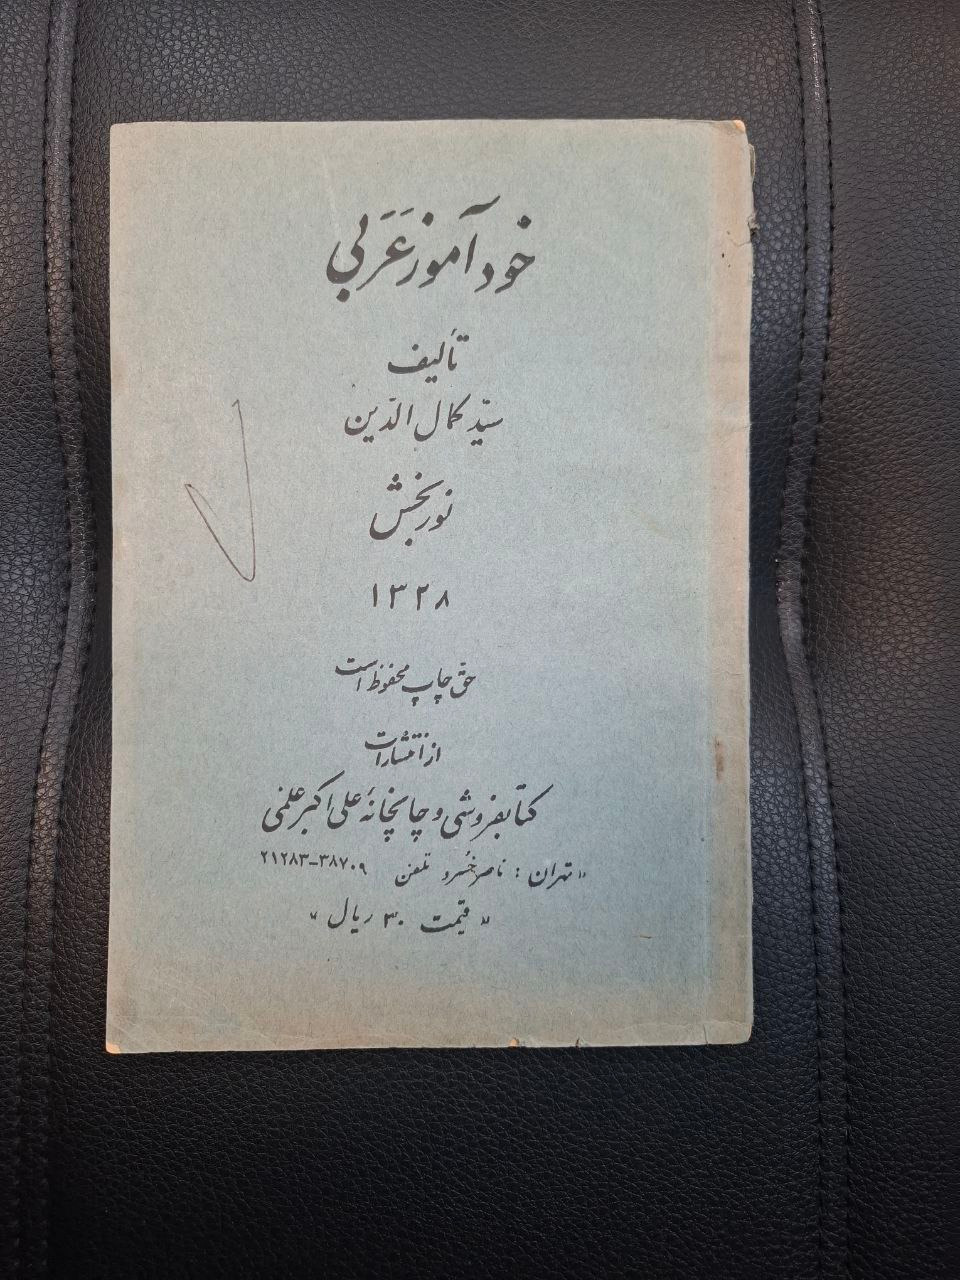 خودآموز عَرَبی
تألیف
سیّد کمال الدّین
نوربخش
۱۳۲۸
حق چاپ محفوظ است
از انتشارات
کتابفروشی و چاپخانهٔ علی اکبر علمی
«تهران : ناصرخسرو تلفن ۳۸۷۰۹-۲۱۲۸۳
«قیمت ۳۰ ریال»